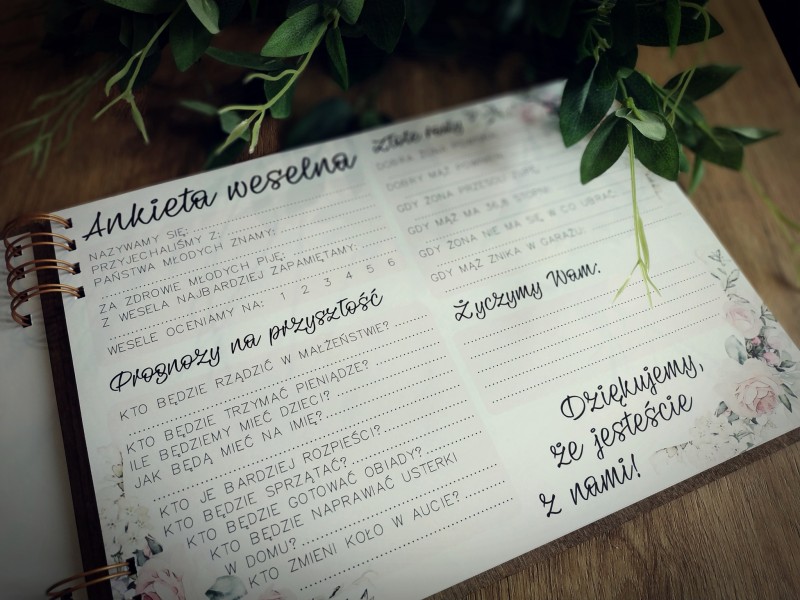 Ankieta weselna
NAZYWAMY SIĘ:
PRZYJECHALIŚMY Z:
PAŃSTWA MŁODYCH ZNAMY:
ZA ZDROWIE MŁODYCH PIJĘ:
Z WESELA NAJBARDZIEJ ZAPAMIĘTAMY:
WESELE OCENIAMY NA: 1 2 3 4 5 6
Prognozy na przyszłość
KTO BĘDZIE RZĄDZIĆ W MAŁŻEŃSTWIE?
KTO BĘDZIE TRZYMAĆ PIENIĄDZE?
ILE BĘDZIEMY MIEĆ DZIECI?
JAK BĘDĄ MIEĆ NA IMIĘ?
KTO JE BARDZIEJ ROZPIEŚCI?
KTO BĘDZIE SPRZĄTAĆ?
KTO BĘDZIE GOTOWAĆ OBIADY?
KTO BĘDZIE NAPRAWIAĆ USTERKI
W DOMU?
KTO ZMIENI KOŁO W AUCIE?
Złote rady
DOBRA ŻONA POWINNA
DOBRY MĄŻ POWINIEN
GDY ŻONA PRZESOLI ZUPĘ,
GDY MĄŻ MA 36,8 STOPNI
GDY ŻONA NIE MA SIĘ W CO UBRAĆ
GDY MĄŻ ZNIKA W GARAŻU:
Życzymy Wam:
Dziękujemy,
że jesteście
z nami!